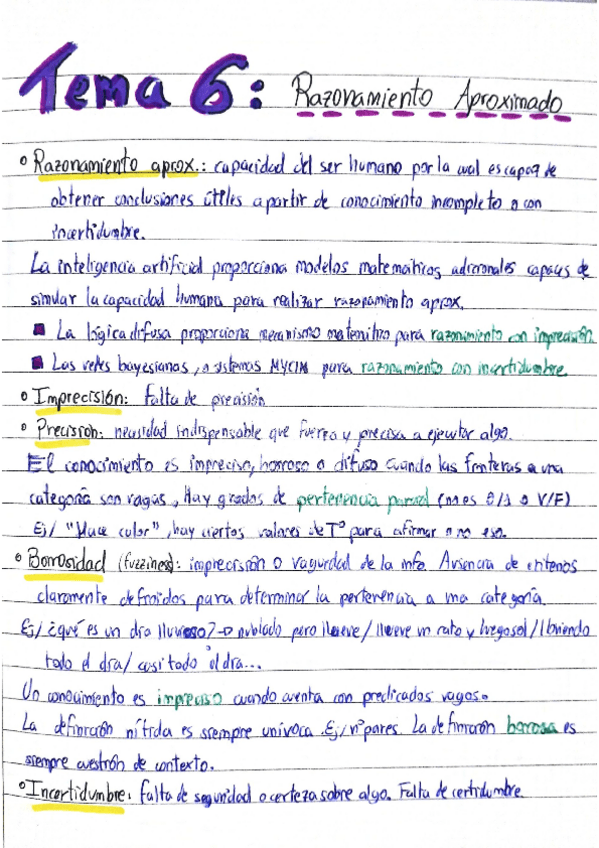 Tema 6: Razonamiento Aproximado
• Razonamiento aprox.: capacidad del ser humano por la cual es capaz de
obtener conclusiones útiles a partir de conocimiento incompleto o con
incertidumbre.
La inteligencia artificial proporciona modelos matemáticos adicionales capaces de
simular la capacidad humana para realizar razonamiento aprox.
■ La lógica difusa proporciona mecanismo matemático para razonamiento con imprecisión.
■ Las redes bayesianas, o sistemas MYCIN para razonamiento con incertidumbre
• Imprecisión: falta de precisión
• Precisión: necesidad indispensable que fuerza y precisa a ejecutar algo.
El conocimiento es impreciso, borroso o difuso cuando las fronteras a una
categoría son vagas, Hay grados de pertenencia parcial (no es 0/1 o V/F)
Ej/ "Hace calor", hay ciertos valores de Tº para afirmar o no eso.
• Borrosidad (fuzziness): imprecisión o vaguedad de la info. Ausencia de criterios
claramente definidos para determinar la pertenencia a una categoría.
Ej/ ¿qué es un día lluvioso? → nublado pero llueve/ llueve un rato y luego sol/ lloviendo
todo el día/ casi todo el día...
Un conocimiento es impreciso cuando cuenta con predicados vagos.
La definición nítida es siempre unívoca. Ej/ nº pares. La definición borrosa es
siempre cuestión de contexto.
• Incertidumbre: falta de seguridad o certeza sobre algo. Falta de certidumbre.